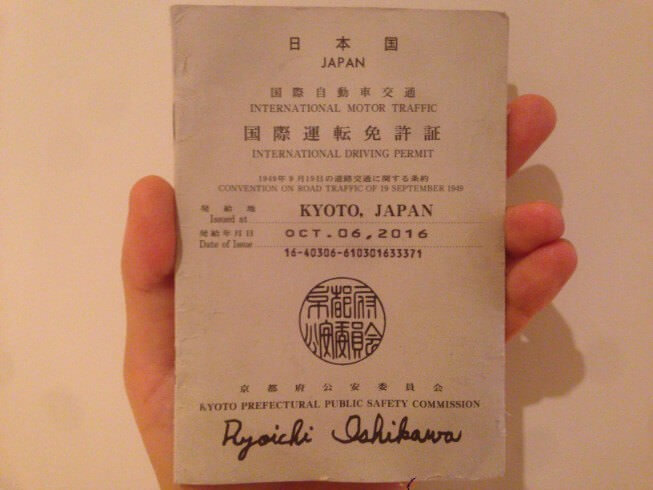 日本国
JAPAN
国際自動車交通
INTERNATIONAL MOTOR TRAFFIC
国際運転免許証
INTERNATIONAL DRIVING PERMIT
1949年9月19日の道路交通に関する条約
CONVENTION ON ROAD TRAFFIC OF 19 SEPTEMBER 1949
発給地
Issued at
KYOTO, JAPAN
発給年月日
Date of Issue
OCT.06,2016
16-40306-610301633371
京都府
公安委員会
京都府公安委員会
KYOTO PREFECTURAL PUBLIC SAFETY COMMISSION
Ryoichi Ishikawa